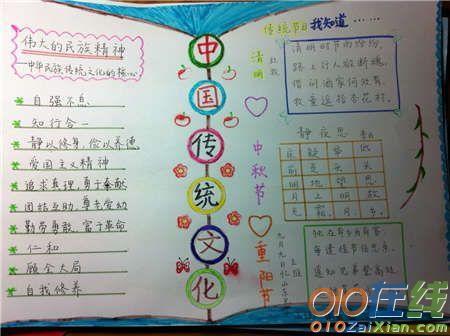 伟大的民族精神
——中华民族传统文化的核心
自强不息
知行合一
静以修身,俭以养德
爱国主义精神
追求真理,勇于奉献
团结互助,尊老爱幼
勤劳勇敢,富于革命
仁和
顾全大局
自我修养
中
国
传
统
文
化
传统节日我知道……
清明
杜牧
清明时节雨纷纷,
路上行人欲断魂。
借问酒家何处有,
牧童遥指杏花村。
中秋节
静夜思
床疑举低
前是头头
明地望思
月上明故
光霜月乡
重阳节
九月九日忆山东
王维
每逢佳节倍思亲。
遥知兄弟登高处,
010在线
010ZaiXian.com